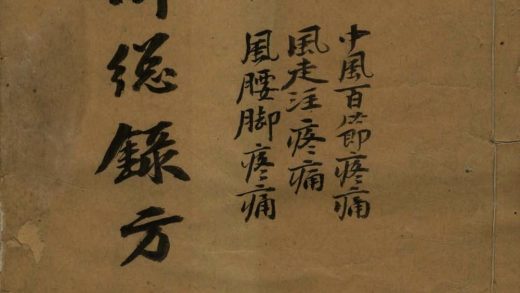 中風百節疼痛
風走注疼痛
風腰脚疼痛
総錄方